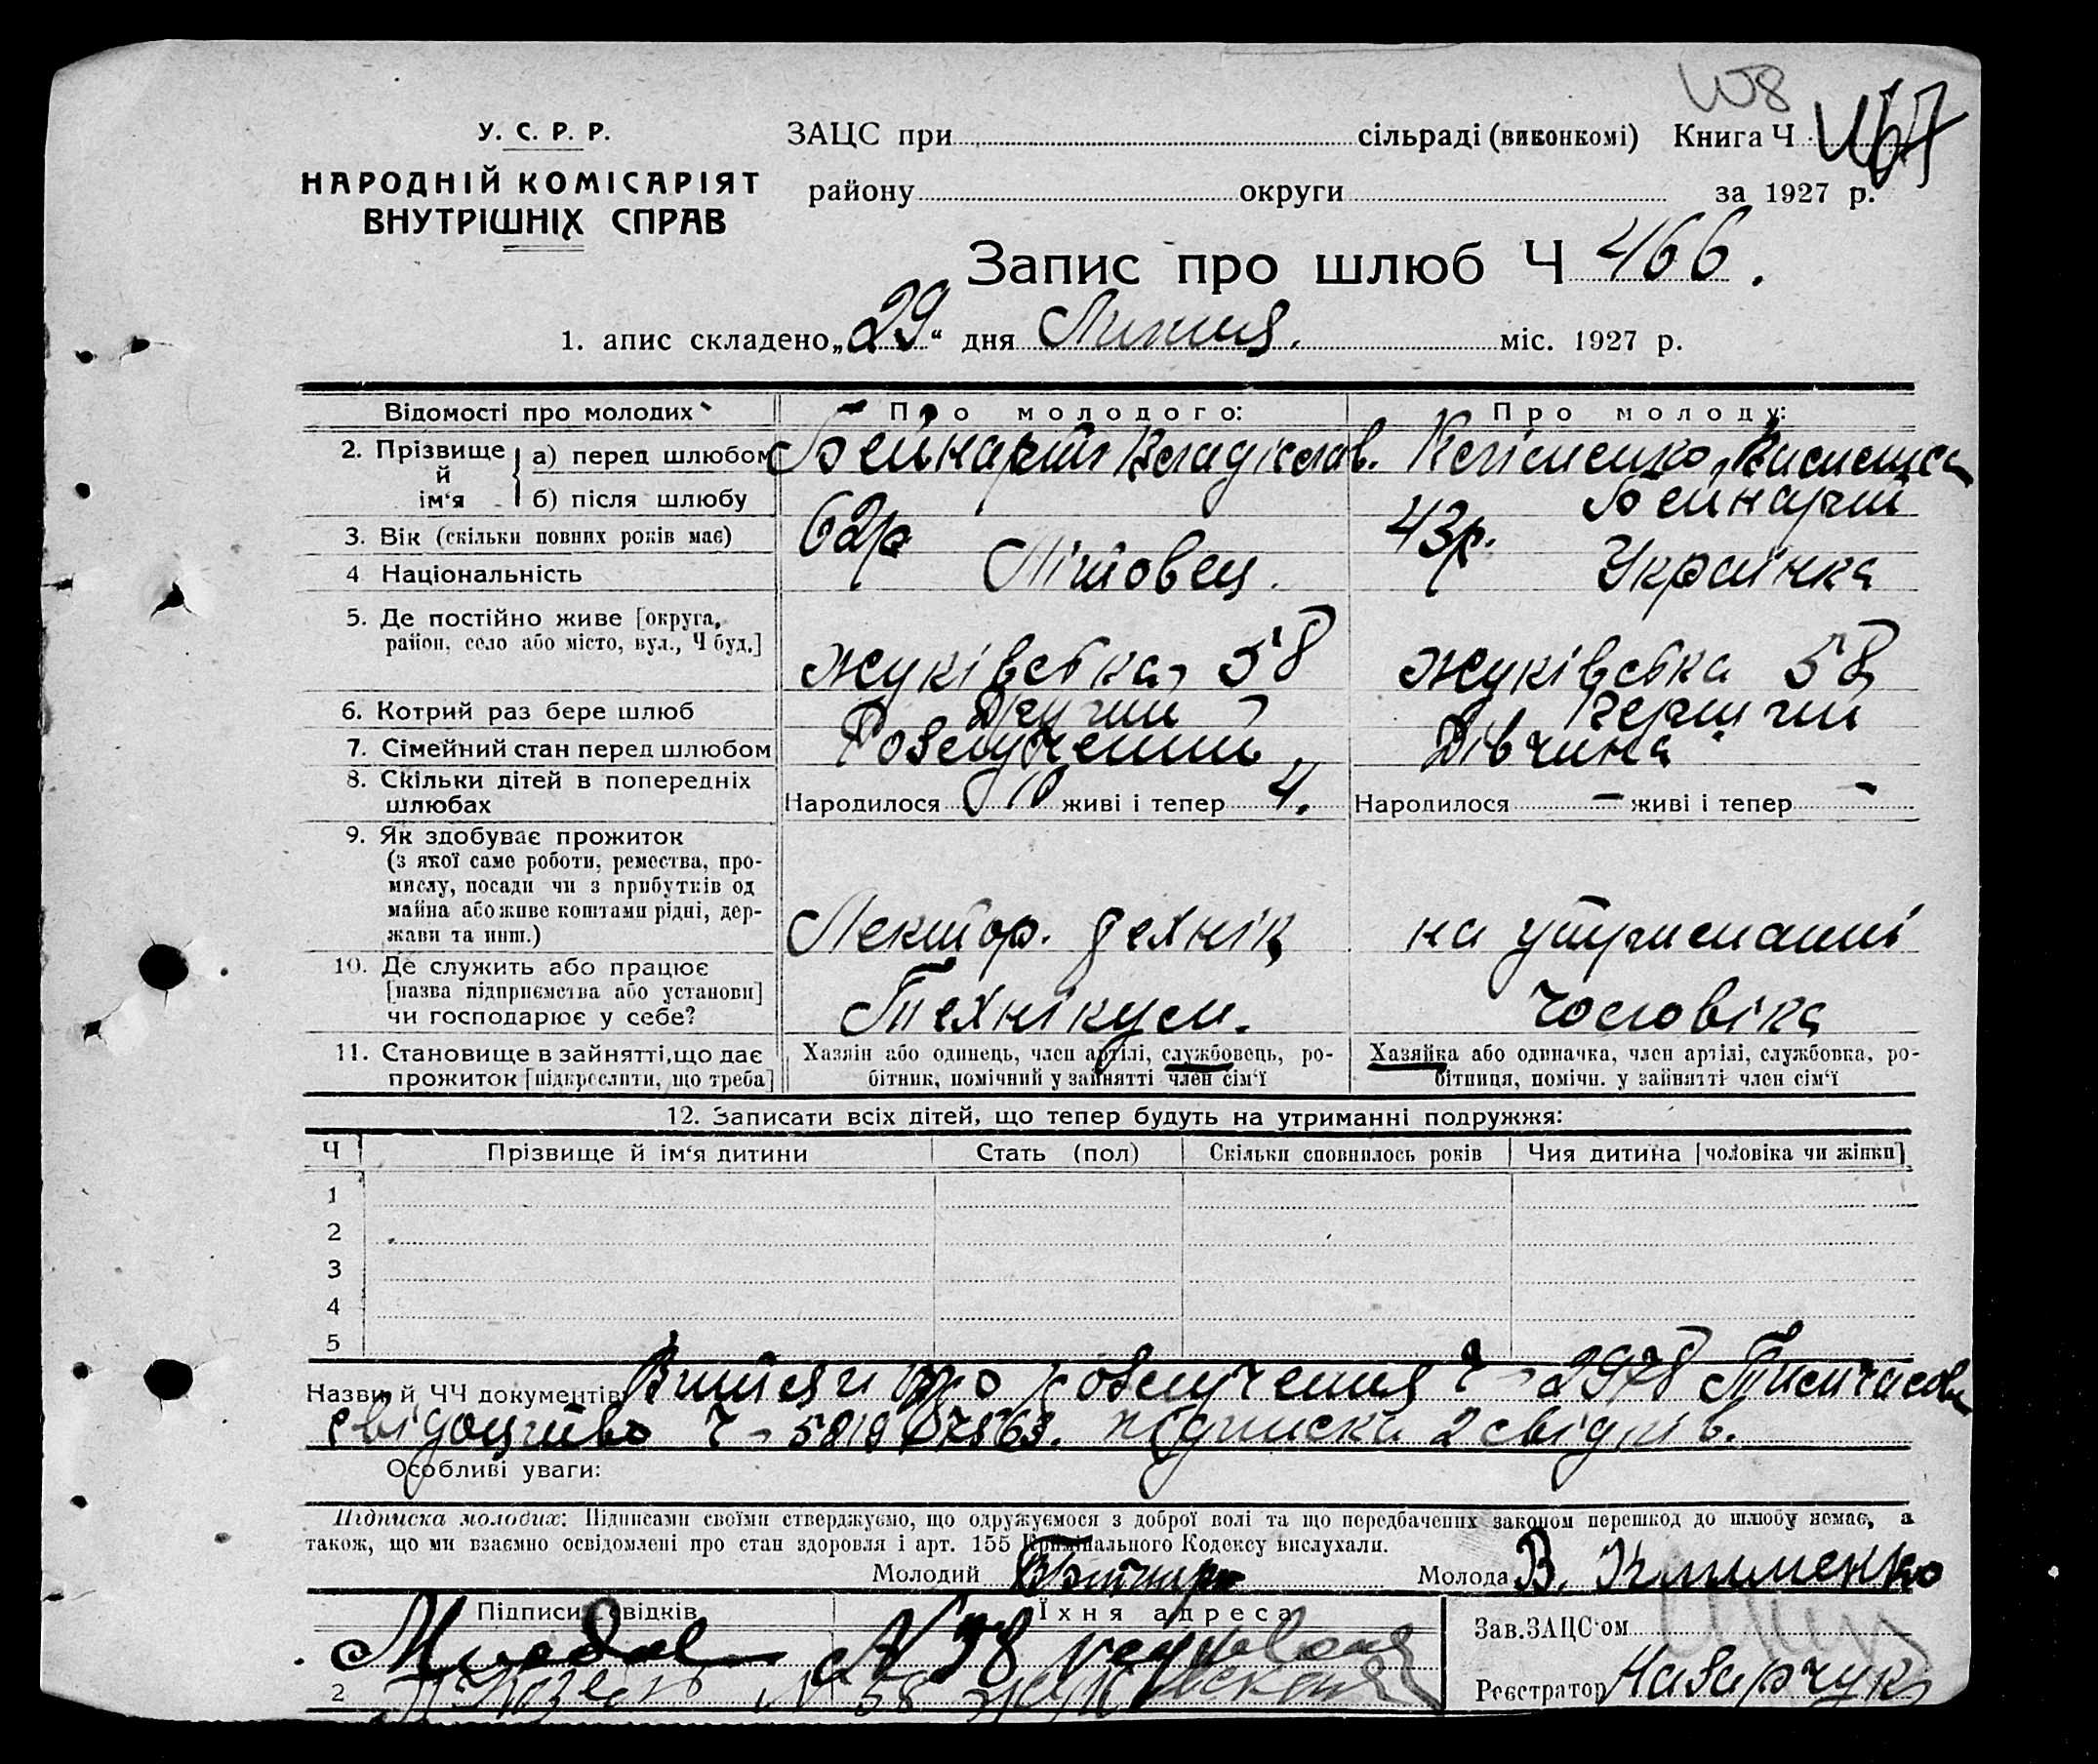 У. С. Р. Р.
НАРОДНІЙ КОМІСАРІЯТ
ВНУТРІШНІХ СПРАВ
ЗАЦС при сільраді (виконкомі) Книга Ч
району округи за 1927 р.
Запис про шлюб Ч 466.
1. апис складено „29“ дня Липня. міс. 1927 р.
Відомості про молодих
Про молодого:
Про молоду:
2. Прізвище й ім‘я
а) перед шлюбом
Бейнарт Владіслав. Клименко,
б) після шлюбу
Бейнарт
3. Вік (скільки повних років має)
62р
43р.
4 Національність
Літовец.
Українка
5. Де постійно живе [округа,
район, село або місто, вул., Ч буд.]
Жуківська, 58
Жуківська 58
6. Котрий раз бере шлюб
Другий
Перший
7. Сімейний стан перед шлюбом
Розлучений
Дівчина
8. Скільки дітей в попередніх
шлюбах
Народилося живі і тепер 4.
Народилося — живі і тепер -
9. Як здобуває прожиток
(з якої саме роботи, ремества, про-
мислу, посади чи з прибутків од
майна або живе коштами рідні, дер-
жави та инш.)
Лектор. технік
на утриманні
10. Де служить або працює
[назва підприємства або установи]
чи господарює у себе?
Технікум.
чоловіка
11. Становище в зайнятті, що дає
прожиток [підкреслити, що треба]
Хазяїн або одинець, член артілі, службовець, ро-
бітник, помічний у зайнятті член сім‘ї
Хазяйка або одиначка, член артілі, службовка, ро-
бітниця, помічн. у зайнятті член сім‘ї
12. Записати всіх дітей, що тепер будуть на утриманні подружжя:
Ч
Прізвище й ім‘я дитини
Стать (пол)
Скільки сповнилось років
Чия дитина [чоловіка чи жінки]
1
2
3
4
5
Назви й ЧЧ документів: Витяги про розлучення Ч - 2978 Тимчасове
свідоцтво Ч - підписки 2 свідків.
Особливі уваги:
Підписка молодих: Підписами своїми стверджуємо, що одружуємося з доброї волі та що передбачених законом перешкод до шлюбу немає, а
також, що ми взаємно освідомлені про стан здоровля і арт. 155 Кримінального Кодексу вислухали.
Молодий
Молода В. Клименко
Підписи свідків
Їхня адреса
Зав.ЗАЦС‘ом
N 58
2
N 58
Реєстратор Назарчук